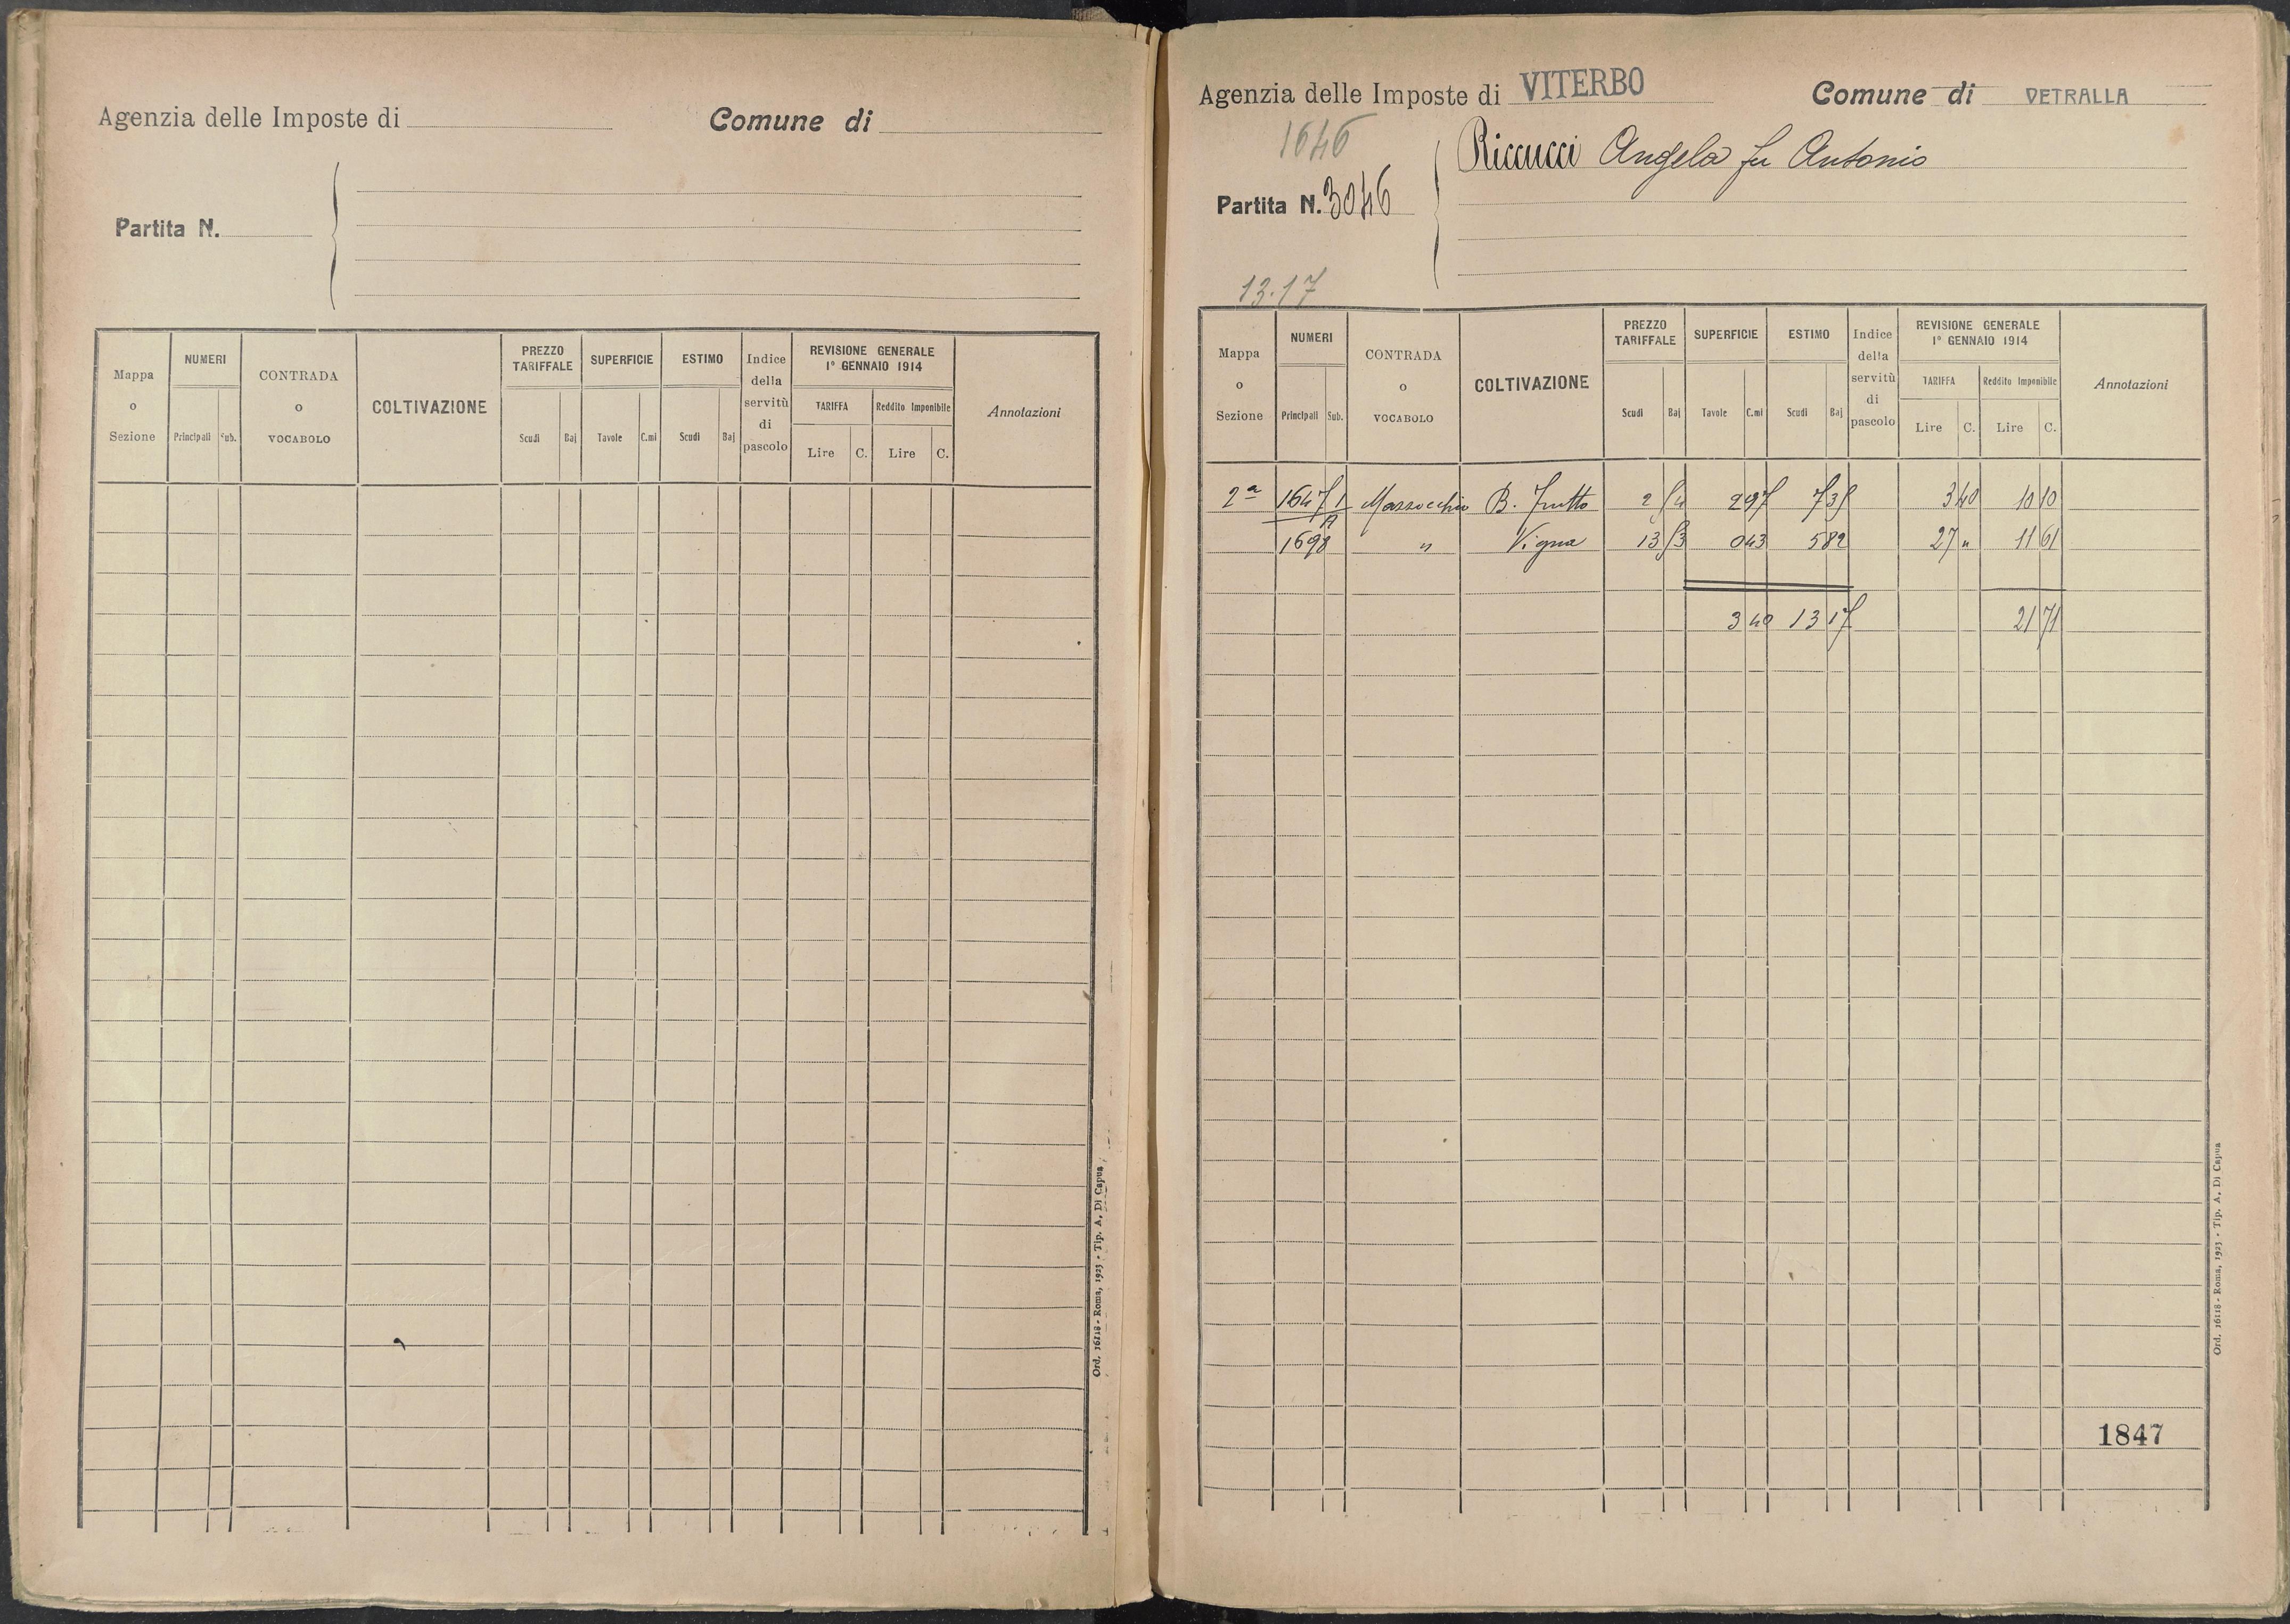 Agenzia delle Imposte di
Comune di
Partita N.
Mappa o Sezione
NUMERI
Principali
Sub.
CONTRADA o VOCABOLO
COLTIVAZIONE
PREZZO TARIFFALE
Scudi
Baj
SUPERFICIE
Tavole
C.mi
ESTIMO
Scudi
Baj
Indice della servitù di pascolo
REVISIONE GENERALE
1° GENNAIO 1914
TARIFFA
Reddito Imponibile
Lire
C.
Lire
C.
Annotazioni
Ord. 16118 - Roma, 1923 - Tip. A. Di Capua
Agenzia delle Imposte di VITERBO
Comune di VETRALLA
1646
Riccucci Angela fu Antonio
Partita N. 3046
13.17
Mappa o Sezione
NUMERI
Principali
Sub.
CONTRADA o VOCABOLO
COLTIVAZIONE
PREZZO TARIFFALE
Scudi
Baj
SUPERFICIE
Tavole
C.mi
ESTIMO
Scudi
Baj
Indice della servitù di pascolo
REVISIONE GENERALE
1° GENNAIO 1914
TARIFFA
Reddito Imponibile
Lire
C.
Lire
C.
Annotazioni
2ª 1647 1/A B. frutto 2 54 2 97 7 35 3 40 10 10
1698 " Vigna 13 53 0 43 5 82 27 " 11 61
3 40 13 17 21 71
1847
Ord. 16118 - Roma, 1923 - Tip. A. Di Capua